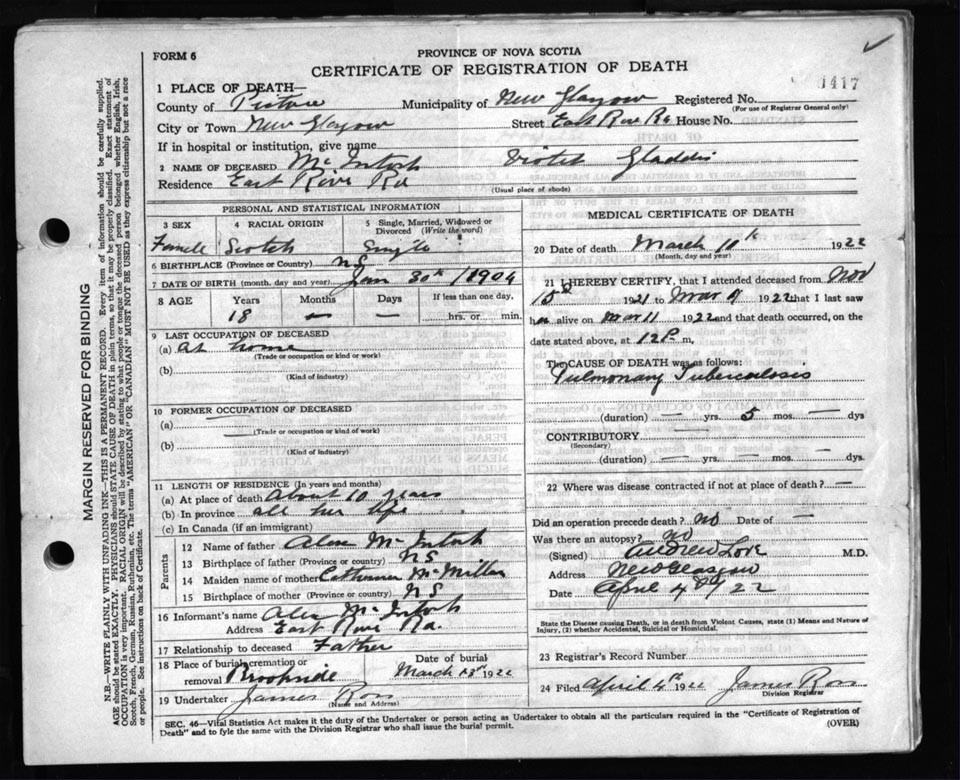 FORM 6
PROVINCE OF NOVA SCOTIA
CERTIFICATE OF REGISTRATION OF DEATH
1417
1 PLACE OF DEATH—
County of Pictou Municipality of New Glasgow Registered No.
(For use of Registrar General only)
City or Town New Glasgow Street East River Rd House No.
If in hospital or institution, give name
2 NAME OF DECEASED McIntosh Violet Gladdis
Residence East River Rd (Usual place of abode)
PERSONAL AND STATISTICAL INFORMATION
3 SEX 4 RACIAL ORIGIN 5 Single, Married, Widowed or Divorced (Write the word)
Femell Scotch Single
6 BIRTHPLACE (Province or Country) NS
7 DATE OF BIRTH (month, day and year) Jan 30th 1904
8 AGE Years Months Days If less than one day,
18 — — hrs. or min.
9 LAST OCCUPATION OF DECEASED
(a) At home
(Trade or occupation or kind or work)
(b)
(Kind of industry)
10 FORMER OCCUPATION OF DECEASED
(a)
(Trade or occupation or kind of work)
(b)
(Kind of Industry)
11 LENGTH OF RESIDENCE (In years and months)
(a) At place of death About 10 years
(b) In province all her life
(c) In Canada (if an immigrant)
Parents
12 Name of father Alex McIntosh
13 Birthplace of father (Province or country) NS
14 Maiden name of mother McMillan
15 Birthplace of mother (Province or country) NS
16 Informant's name Alex McIntosh
Address East River Rd.
17 Relationship to deceased Father
18 Place of burial, cremation or removal Brookside Date of burial March 13th 1922
19 Undertaker James Ross
(Name and Address)
MEDICAL CERTIFICATE OF DEATH
20 Date of death March 11th 1922
(Month, day and year)
21 I HEREBY CERTIFY, that I attended deceased from Nov
15th 1921 to Mar 9 1922 that I last saw
her alive on Mar 11 1922 and that death occurred, on the
date stated above, at 12P m,
The CAUSE OF DEATH was as follows:
Pulmonary Tuberculosis
(duration) — yrs. 5 mos. — dys
CONTRIBUTORY
(Secondary)
(duration) — yrs. — mos. — dys.
22 Where was disease contracted if not at place of death? —
Did an operation precede death? No Date of —
Was there an autopsy? No
(Signed) Andrew Love M.D.
Address New Glasgow
Date April 4th 1922
State the Disease causing Death, or in death from Violent Causes, state (1) Means and Nature of
Injury, (2) whether Accidental, Suicidal or Homicidal.
23 Registrar's Record Number
24 Filed April 4th 1922 James Ross
Division Registrar
SEC. 46—Vital Statistics Act makes it the duty of the Undertaker or person acting as Undertaker to obtain all the particulars required in the "Certificate of Registration of
Death" and to fyle the same with the Division Registrar who shall issue the burial permit. (OVER)
MARGIN RESERVED FOR BINDING
N.B.—WRITE PLAINLY WITH UNFADING INK—THIS IS A PERMANENT RECORD. Every item of information should be carefully supplied.
AGE should be stated EXACTLY. PHYSICIANS should STATE CAUSE OF DEATH in plain terms, so that it may be properly classified. Exact statement of
OCCUPATION is very important. RACIAL ORIGIN will be described by stating to what people or tongue the deceased person belonged whether English, Irish,
Scotch, French, German, Russian, Ruthenian, etc. The terms "AMERICAN" OR "CANADIAN" MUST NOT BE USED as they express citizenship but not a race
or people. See instructions on back of Certificate.